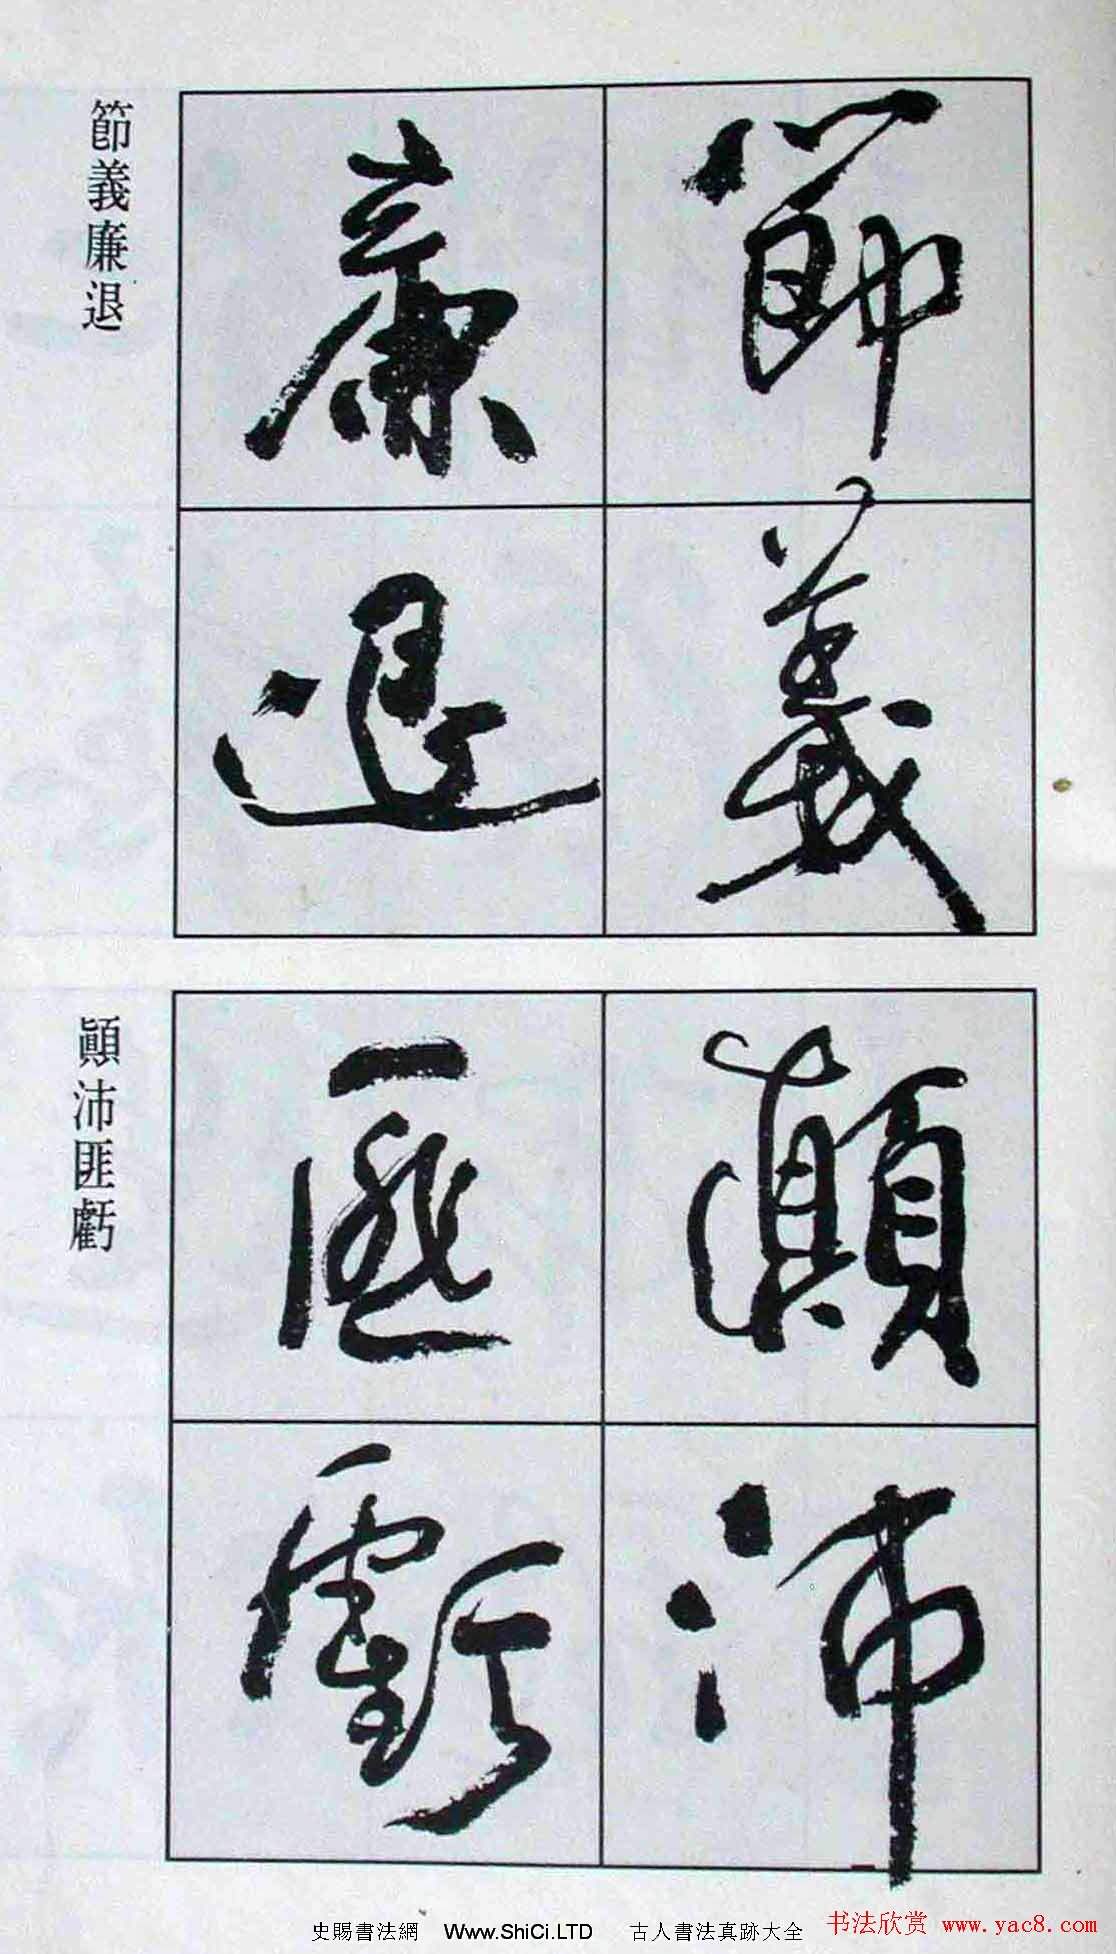 節義
廉退
節義廉退
顛沛
匪虧
顛沛匪虧
史賜書法網 Www.ShiCi.LTD 古人書法真跡大全
书法欣赏 www.yac8.com